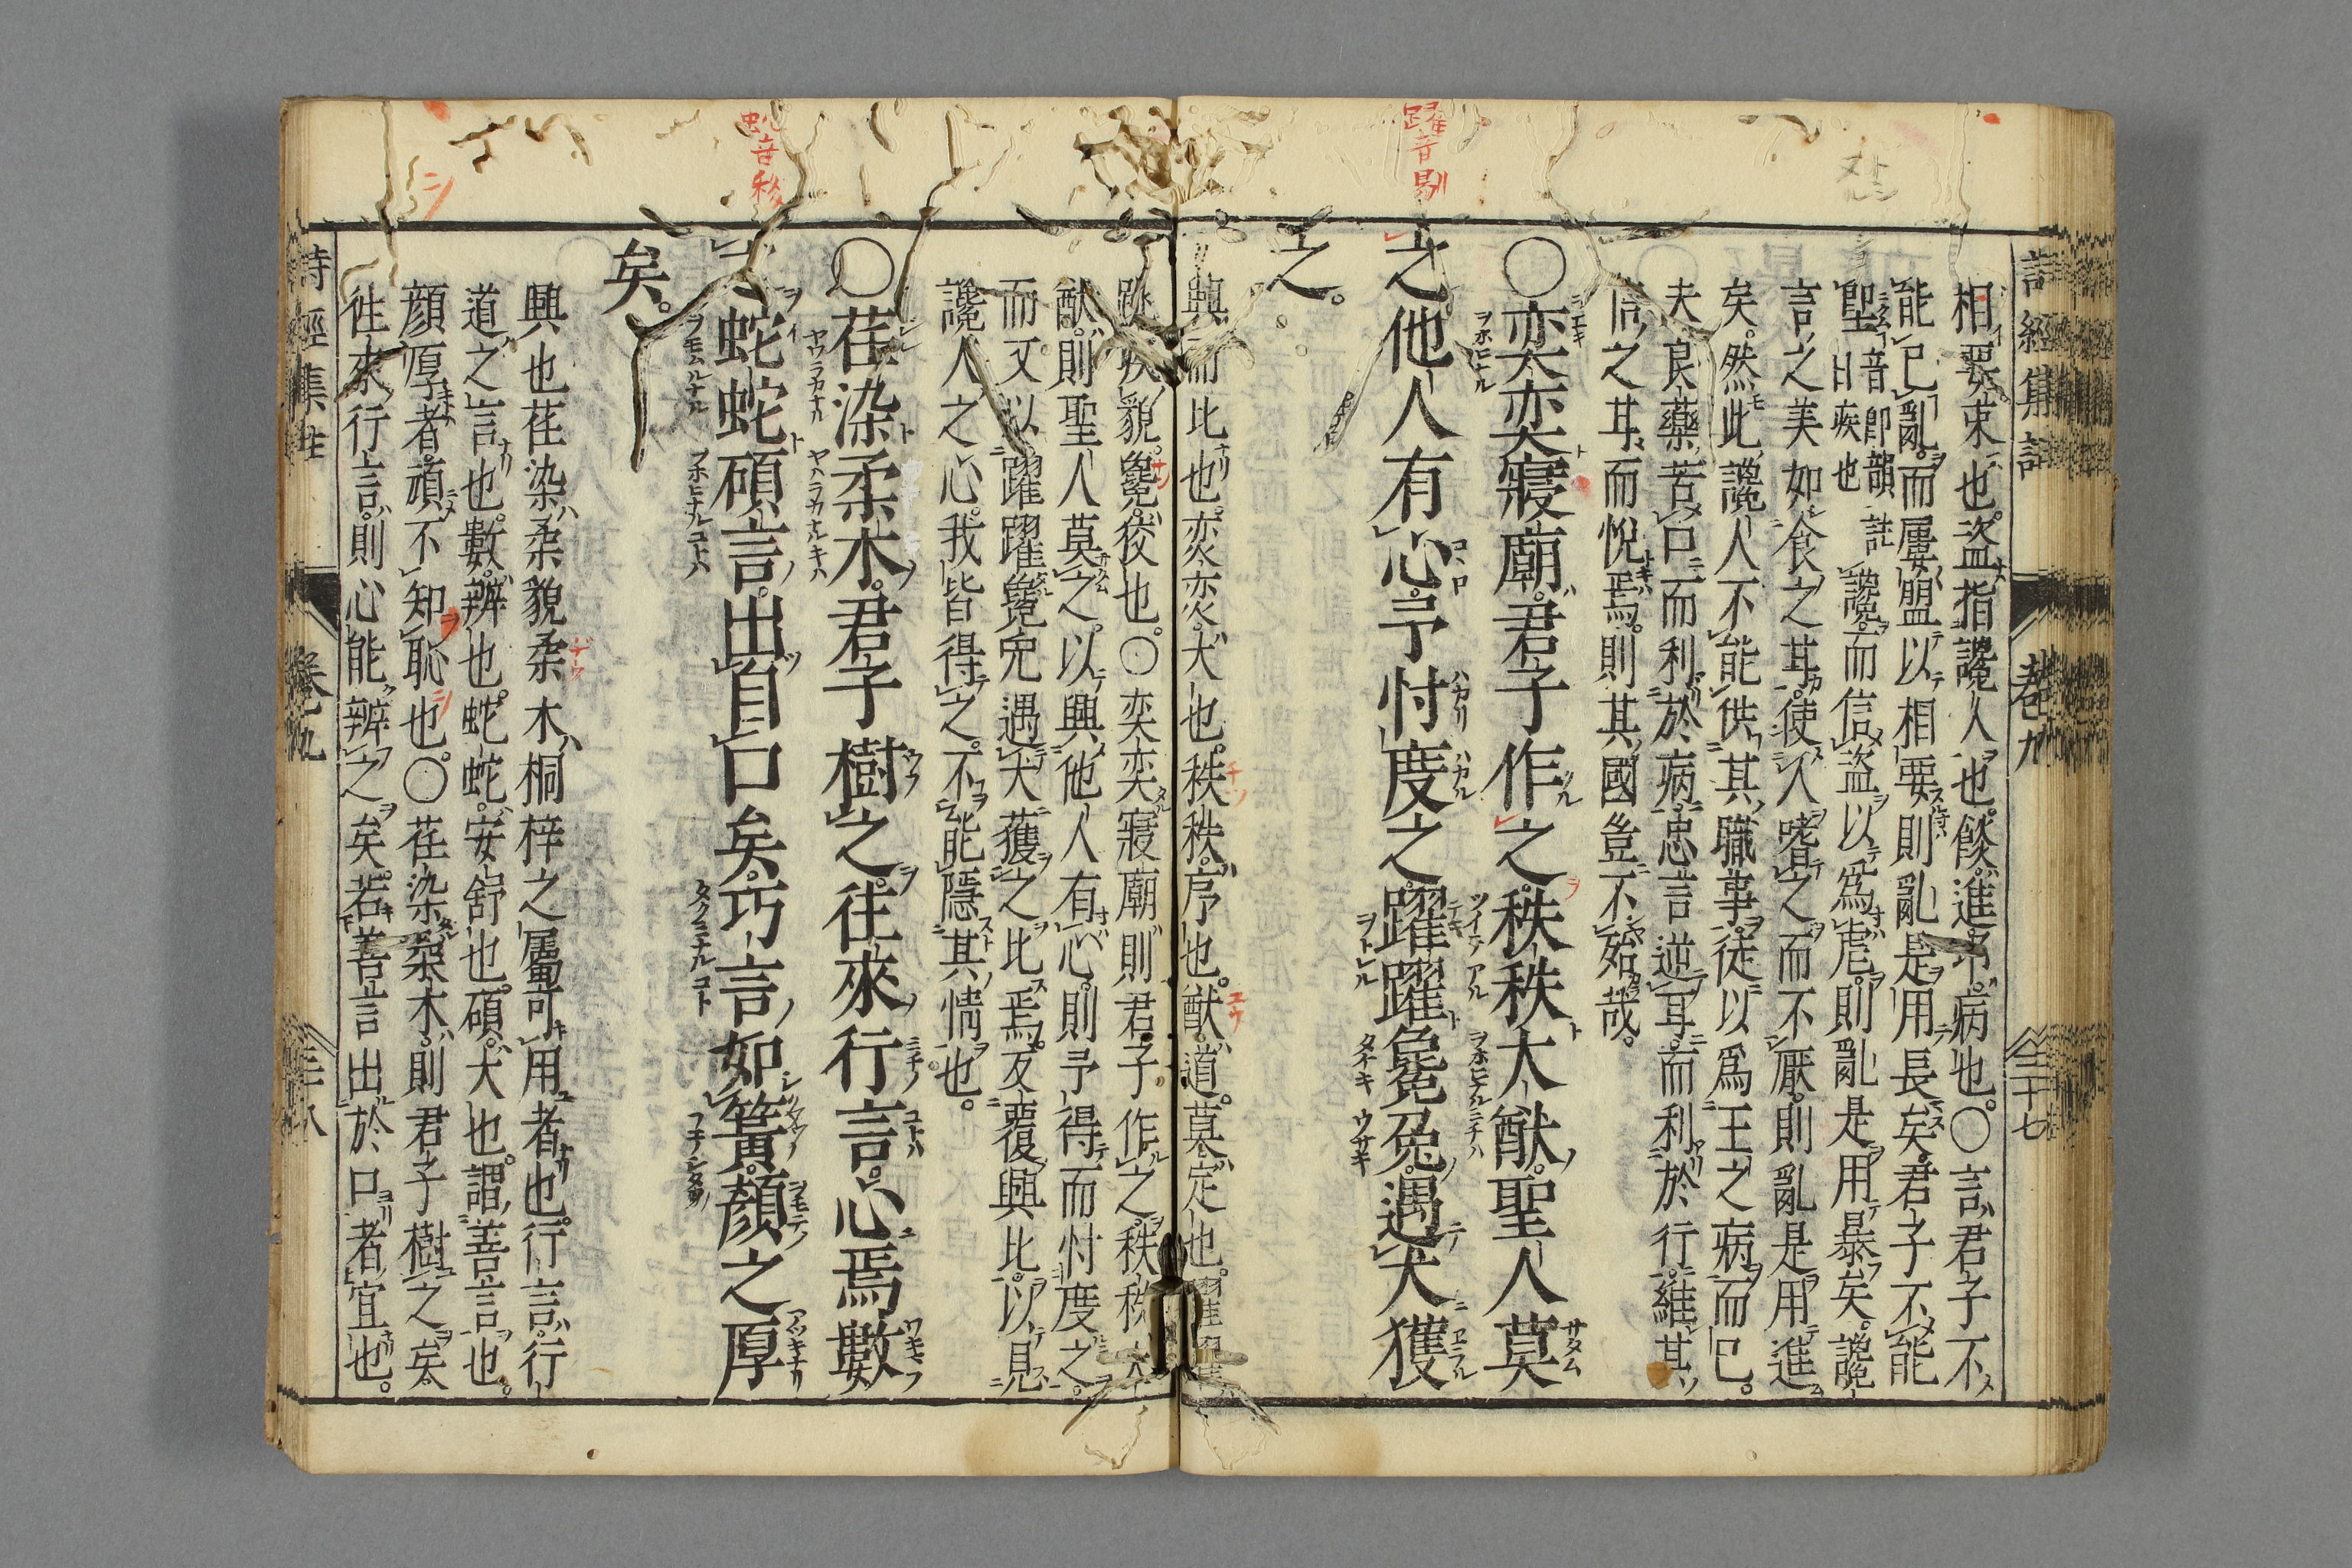 躍音剔
相要束也。盗指讒人也。餤進卭病也。○言君子不
能已亂。而屢盟以相要則亂是用長矣。君子不能
聖音即韻註曰疾也讒。而信盗以爲虐。則亂是用暴矣。讒
言之美如食之甘。使人嗜之而不厭。則亂是用進
矣。然此讒人不能供其職事。徒以爲王之病而已。
夫良藥苦口而利於病。忠言逆耳。而利於行。維其
信之甘而悅焉。則其國豈不殆哉。
○奕奕寢廟。君子作之。秩秩大猷。聖人莫
之。他人有心。予忖度之。躍躍毚兔。遇犬獲
之。
興而比也。奕奕。大也。秩秩。序也。猷。道。莫。定也。躍躍
詩經集註
卷九
三十七
蛇音移
跳疾貌。毚。狡也。○奕奕寢廟。則君子作之。秩秩大
猷。則聖人莫之。以興他人有心。則予得而忖度之。
而又以躍躍毚兔遇犬獲之比焉。反覆興比。以見
讒人之心。我皆得之。不能隱其情也。
○荏染柔木。君子樹之。往來行言。心焉數
之。蛇蛇碩言。出自口矣。巧言如簧。顏之厚
矣。
興也荏染。柔貌柔木。桐梓之屬可用者也。行言。行
道之言也。數。辨也。蛇蛇。安舒也。碩。大也。謂善言也。
顏厚者。頑不知恥也。○荏染柔木。則君子樹之矣
往來行言。則心能辨之矣。若善言出於口者宜也。
詩經集註
卷九
三十八